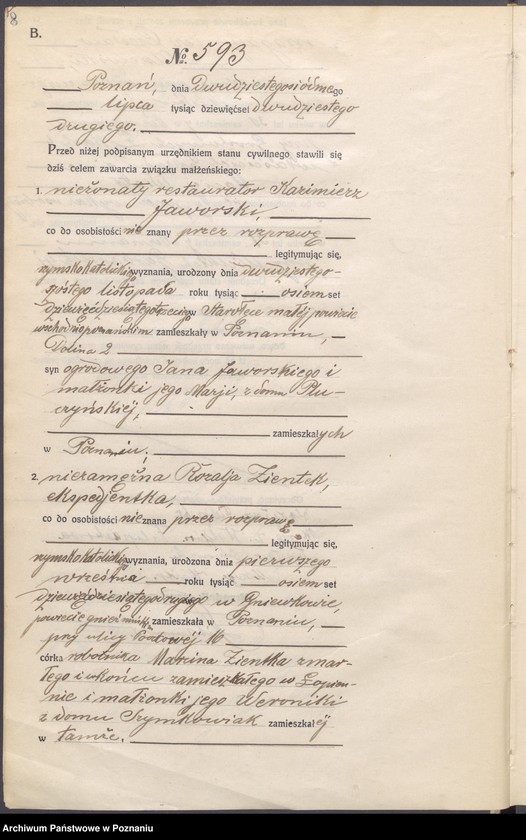 8
B.
№ 593
Poznań, dnia Dwudziestegosiódmego
lipca tysiąc dziewięćset dwudziestego
drugiego.
Przed niżej podpisanym urzędnikiem stanu cywilnego stawili się
dziś celem zawarcia związku małżeńskiego:
1. nieżonaty restaurator Kazimierz
Jaworski,
co do osobistości nie znany przez rozprawę
legitymując się,
rzymskokatolickiego wyznania, urodzony dnia dwudziestego-
szóstego listopada roku tysiąc osiemset
dziewięćdziesiątegotrzeciego w Starołęce małej powiecie
wschodniopoznańskim zamieszkały w Poznaniu,
Dolina 2
syn ogrodowego Jana Jaworskiego i
małżonki jego Marji, z domu Płu-
czyńskiej,
zamieszkałych
w Poznaniu;
2. niezamężna Rozalja Zientek,
ekspedjentka,
co do osobistości nie znana przez rozprawę
legitymując się,
rzymskokatolickiego wyznania, urodzona dnia pierwszego
września roku tysiąc osiemset
dziewięćdziesiątegodrugiego w Gniewkowie,
powiecie zamieszkała w Poznaniu,
przy ulicy 16
córka robotnika Marcina Zientka zmar-
łego i wkońcu zamieszkałego w Łopien-
nie i małżonki jego Weroniki
z domu Szymkowiak zamieszkałej
w tamże.
Archiwum Państwowe w Poznaniu